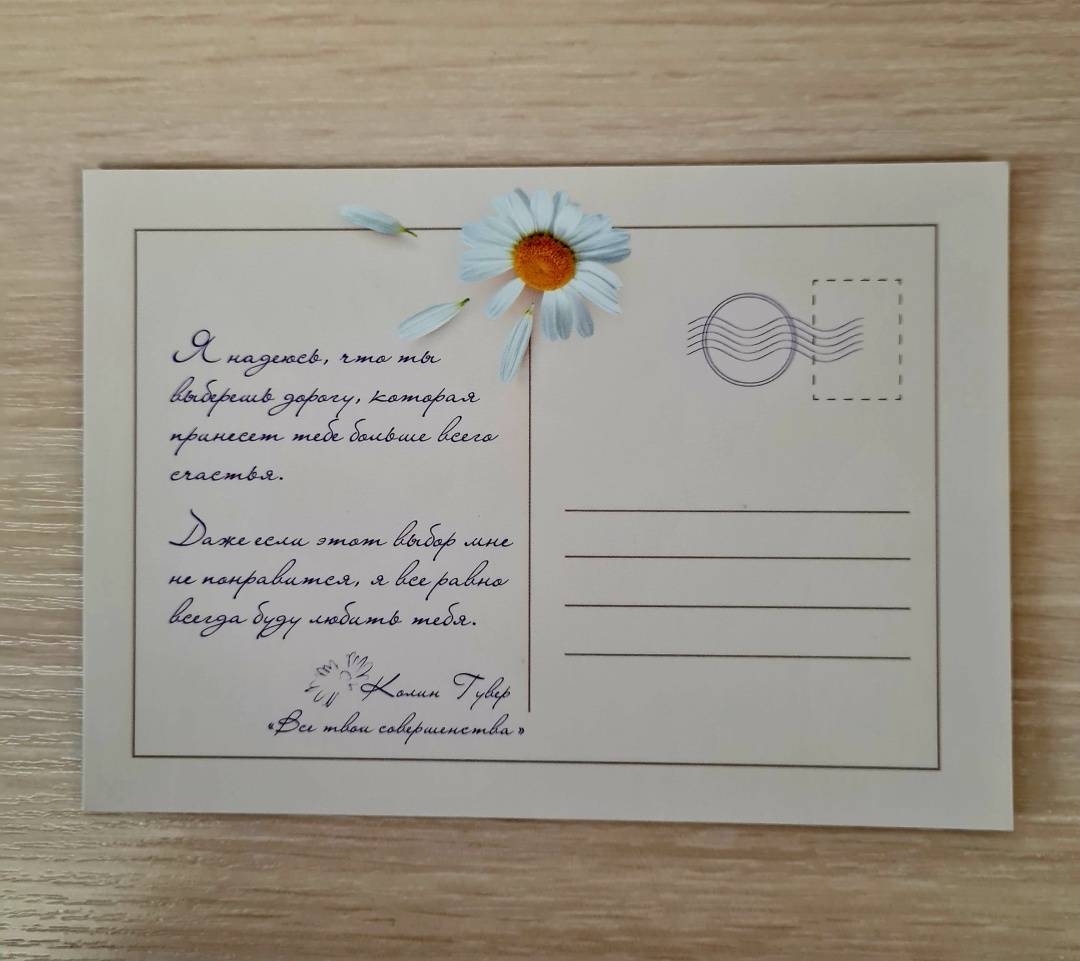 Я надеюсь, что ты
выберешь дорогу, которая
принесет тебе больше всего
счастья.
Даже если этот выбор мне
не понравится, я все равно
всегда буду любить тебя.
Колин Гувер
«Все твои совершенства»